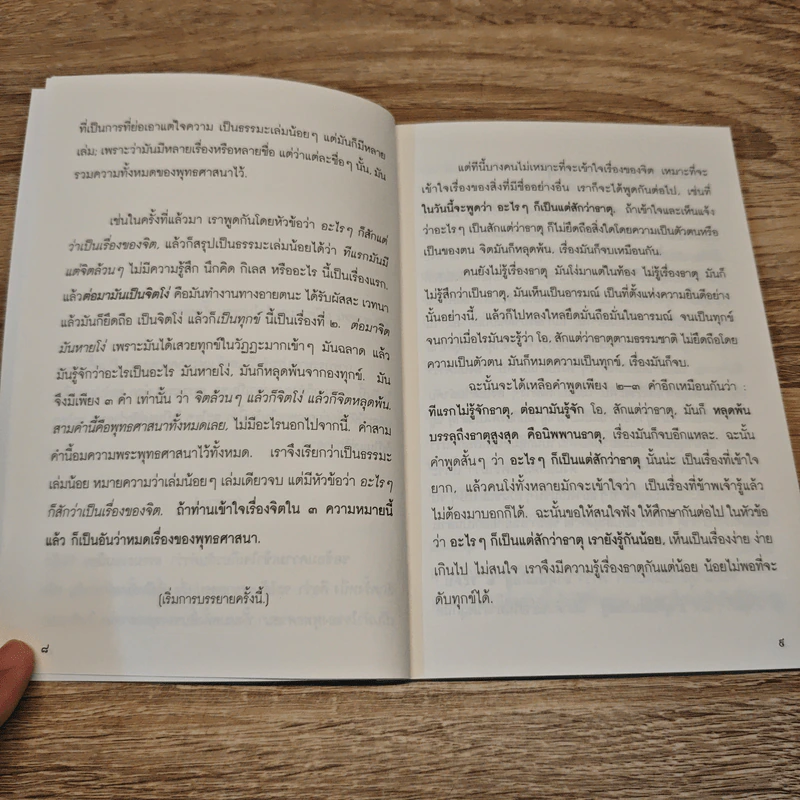 ที่เป็นการที่ย่อเอาแต่ใจความ เป็นธรรมะเล่มน้อยๆ แต่มันก็มีหลาย
เล่ม; เพราะว่ามันมีหลายเรื่องหรือหลายชื่อ แต่ว่าแต่ละชื่อๆ นั้น, มัน
รวมความทั้งหมดของพุทธศาสนาไว้.
เช่นในครั้งที่แล้วมา เราพูดกันโดยหัวข้อว่า อะไรๆ ก็สักแต่
ว่าเป็นเรื่องของจิต, แล้วก็สรุปเป็นธรรมะเล่มน้อยได้ว่า ทีแรกมันมี
แต่จิตล้วนๆ ไม่มีความรู้สึก นึกคิด กิเลส หรืออะไร นี้เป็นเรื่องแรก,
แล้วต่อมามันเป็นจิตโง่ คือมันทำงานทางอายตนะ ได้รับผัสสะ เวทนา
แล้วมันก็ยึดถือ เป็นจิตโง่ แล้วก็เป็นทุกข์ นี้เป็นเรื่องที่ ๒. ต่อมาจิต
มันหายโง่ เพราะมันได้เสวยทุกข์ในวัฏฏะมากเข้าๆ มันฉลาด แล้ว
มันรู้จักว่าอะไรเป็นอะไร มันหายโง่, มันก็หลุดพ้นจากกองทุกข์. มัน
จึงมีเพียง ๓ คำ เท่านั้น ว่า จิตล้วนๆ แล้วก็จิตโง่ แล้วก็จิตหลุดพ้น.
สามคำนี้คือพุทธศาสนาทั้งหมดเลย, ไม่มีอะไรนอกไปจากนี้. คำสาม
คำนี้อมความพระพุทธศาสนาไว้ทั้งหมด. เราจึงเรียกว่าเป็นธรรมะ
เล่มน้อย หมายความว่าเล่มน้อยๆ เล่มเดียวจบ แต่มีหัวข้อว่า อะไรๆ
ก็สักว่าเป็นเรื่องของจิต. ถ้าท่านเข้าใจเรื่องจิตใน ๓ ความหมายนี้
แล้ว ก็เป็นอันว่าหมดเรื่องของพุทธศาสนา.
(เริ่มการบรรยายครั้งนี้.)
๘
แต่ทีนี้บางคนไม่เหมาะที่จะเข้าใจเรื่องของจิต เหมาะที่จะ
เข้าใจเรื่องของสิ่งที่มีชื่ออย่างอื่น เราก็จะได้พูดกันต่อไป, เช่นที่
ในวันนี้จะพูดว่า อะไรๆ ก็เป็นแต่สักว่าธาตุ, ถ้าเข้าใจและเห็นแจ้ง
ว่าอะไรๆ เป็นสักแต่ว่าธาตุ ก็ไม่ยึดถือสิ่งใดโดยความเป็นตัวตนหรือ
เป็นของตน จิตมันก็หลุดพ้น, เรื่องมันก็จบเหมือนกัน.
คนยังไม่รู้เรื่องธาตุ มันโง่มาแต่ในท้อง ไม่รู้เรื่องธาตุ มันก็
ไม่รู้สึกว่าเป็นธาตุ, มันเห็นเป็นอารมณ์ เป็นที่ตั้งแห่งความยินดีอย่าง
นั้นอย่างนี้, แล้วก็ไปหลงใหลยึดมั่นถือมั่นในอารมณ์ จนเป็นทุกข์
จนกว่าเมื่อไรมันจะรู้ว่า โอ, สักแต่ว่าธาตุตามธรรมชาติ ไม่ยึดถือโดย
ความเป็นตัวตน มันก็หมดความเป็นทุกข์, เรื่องมันก็จบ.
ฉะนั้นจะได้เหลือคำพูดเพียง ๒-๓ คำอีกเหมือนกันว่า :
ทีแรกไม่รู้จักธาตุ, ต่อมามันรู้จัก โอ, สักแต่ว่าธาตุ, มันก็ หลุดพ้น
บรรลุถึงธาตุสูงสุด คือนิพพานธาตุ, เรื่องมันก็จบอีกแหละ. ฉะนั้น
คำพูดสั้นๆ ว่า อะไรๆ ก็เป็นแต่สักว่าธาตุ นั้นน่ะ เป็นเรื่องที่เข้าใจ
ยาก, แล้วคนโง่ทั้งหลายมักจะเข้าใจว่า เป็นเรื่องที่ข้าพเจ้ารู้แล้ว
ไม่ต้องมาบอกก็ได้. ฉะนั้นขอให้สนใจฟัง ให้ศึกษากันต่อไป ในหัวข้อ
ว่า อะไรๆ ก็เป็นแต่สักว่าธาตุ เรายังรู้กันน้อย, เห็นเป็นเรื่องง่าย ง่าย
เกินไป ไม่สนใจ เราจึงมีความรู้เรื่องธาตุกันแต่น้อย น้อยไม่พอที่จะ
ดับทุกข์ได้.
๙